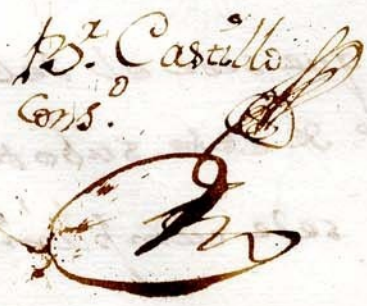 Br. Castillo
Cons.o